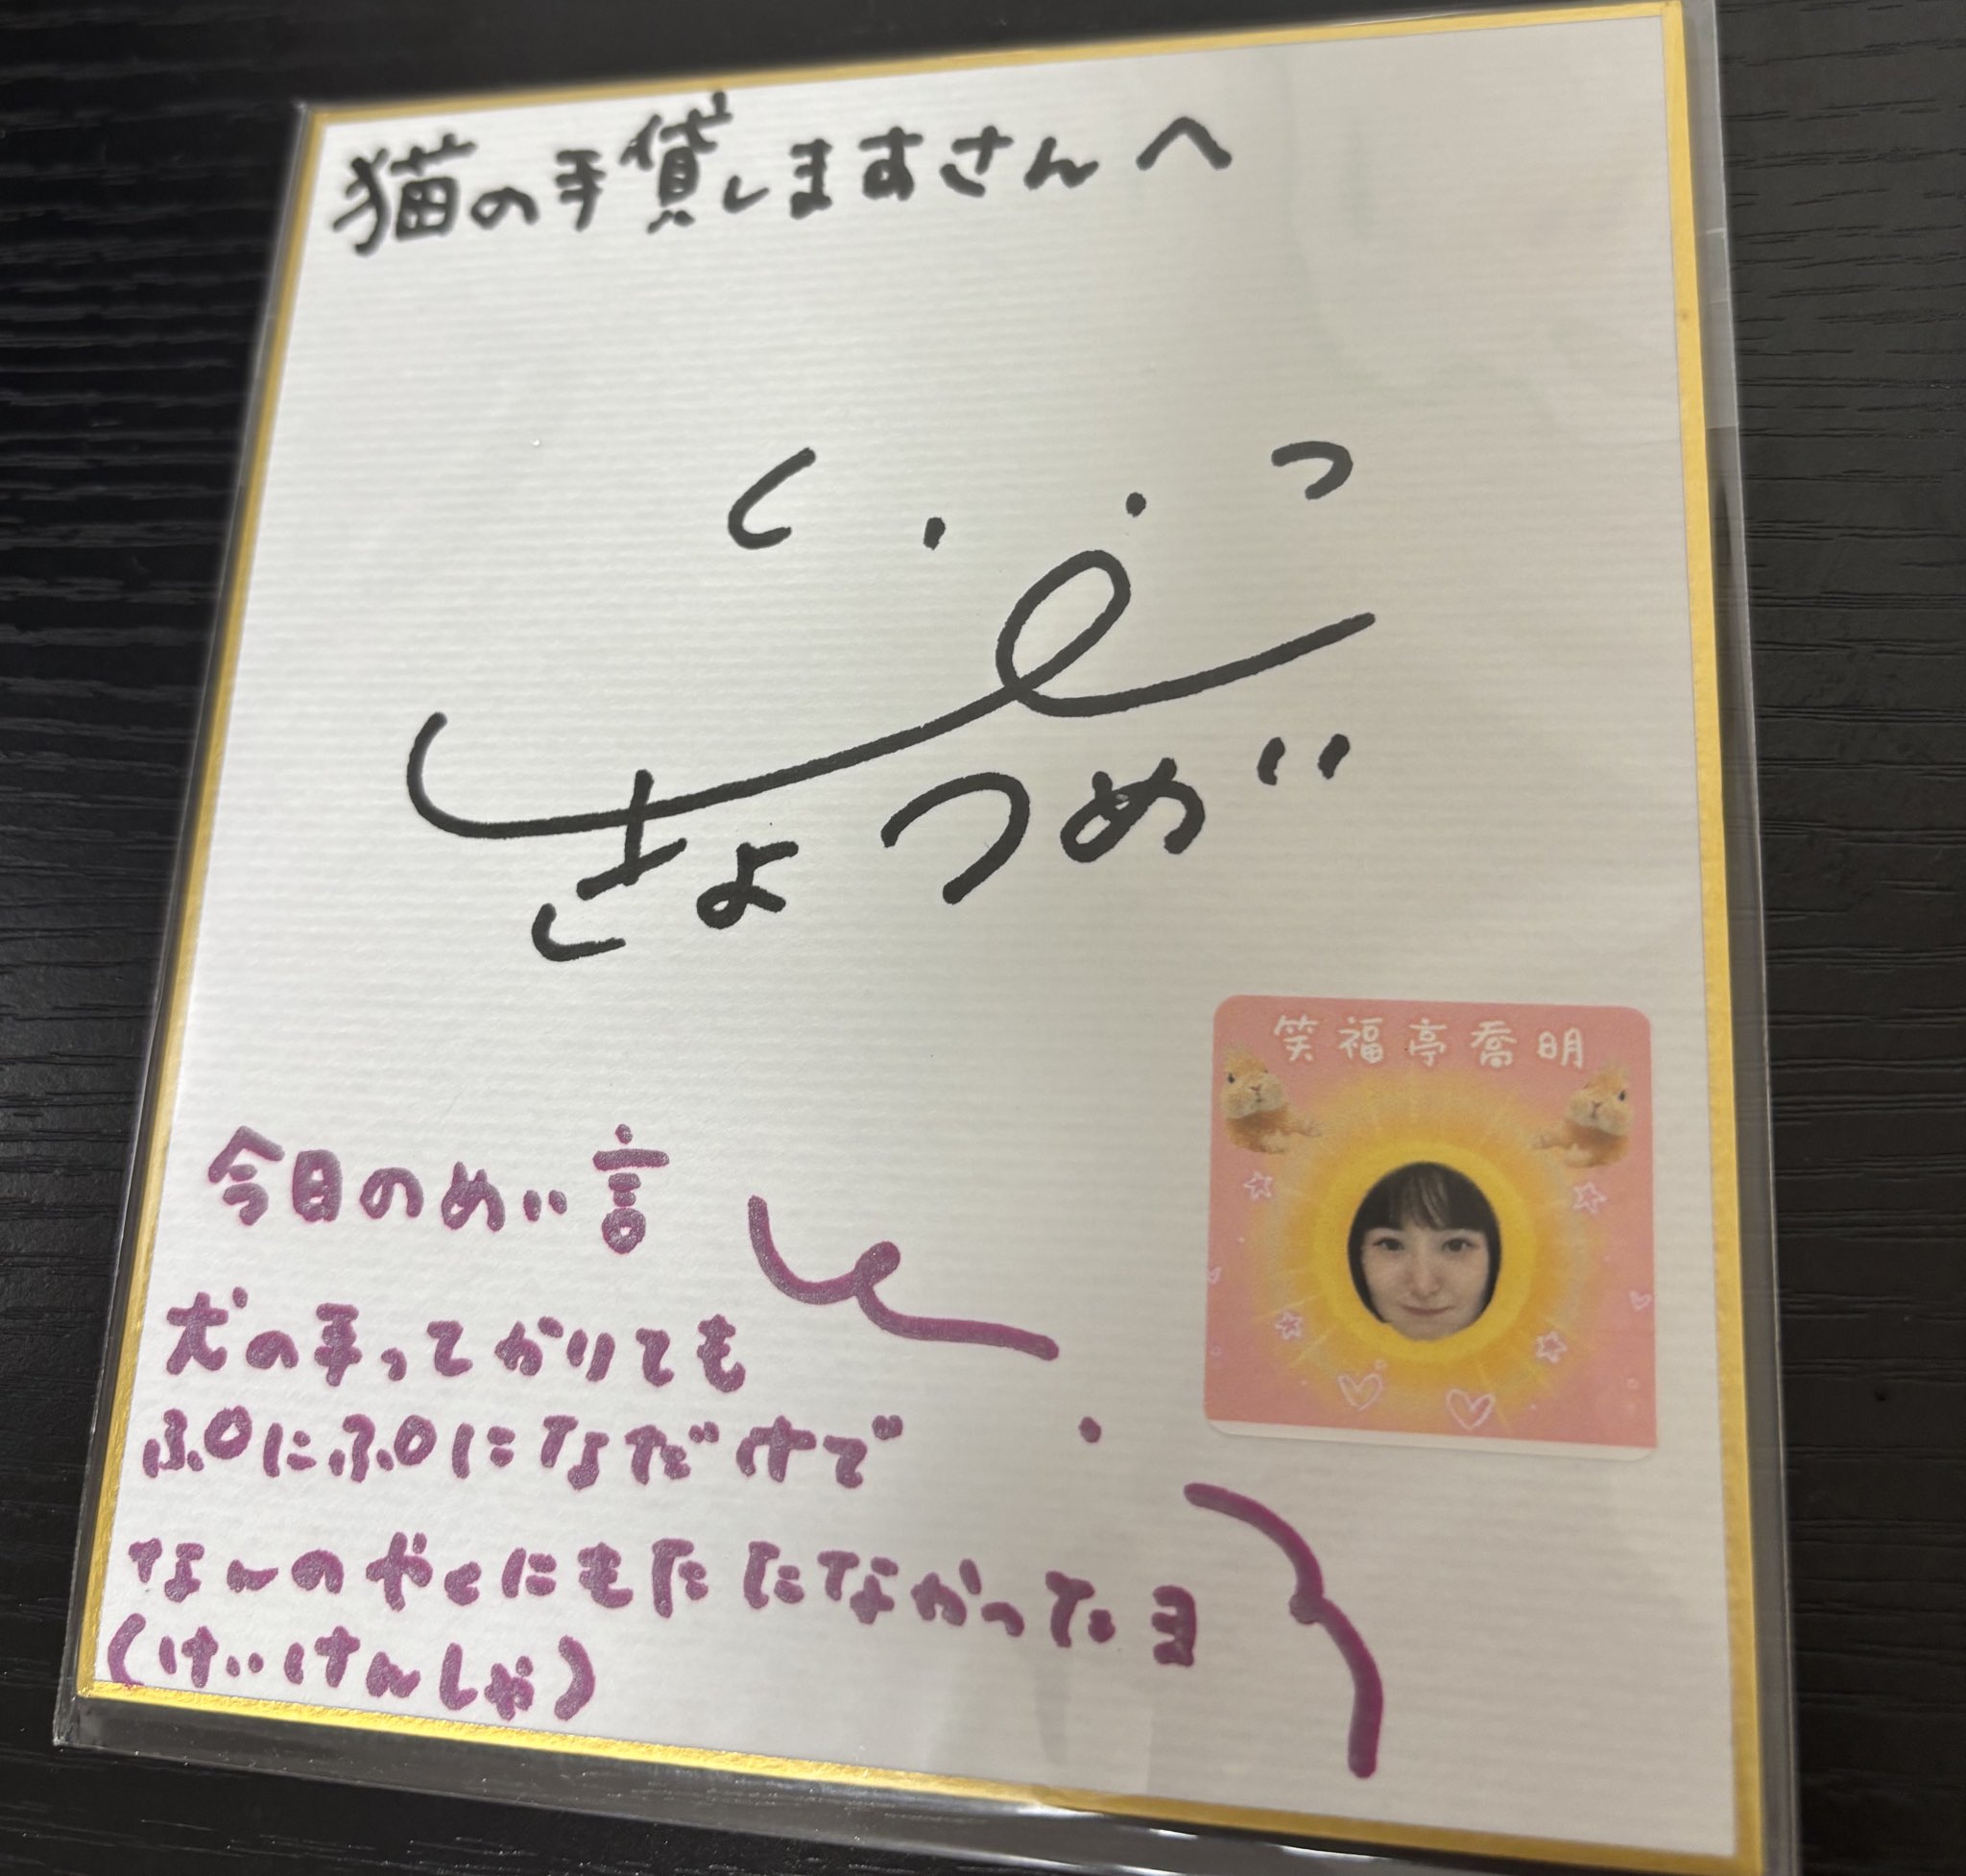 猫の手貸しますさんへ
きょうめい
笑福亭喬明
今日のめい言
犬の手ってかりても
ぷにぷになだけで
なんのやくにもたたなかったヨ
(けいけんしゃ)